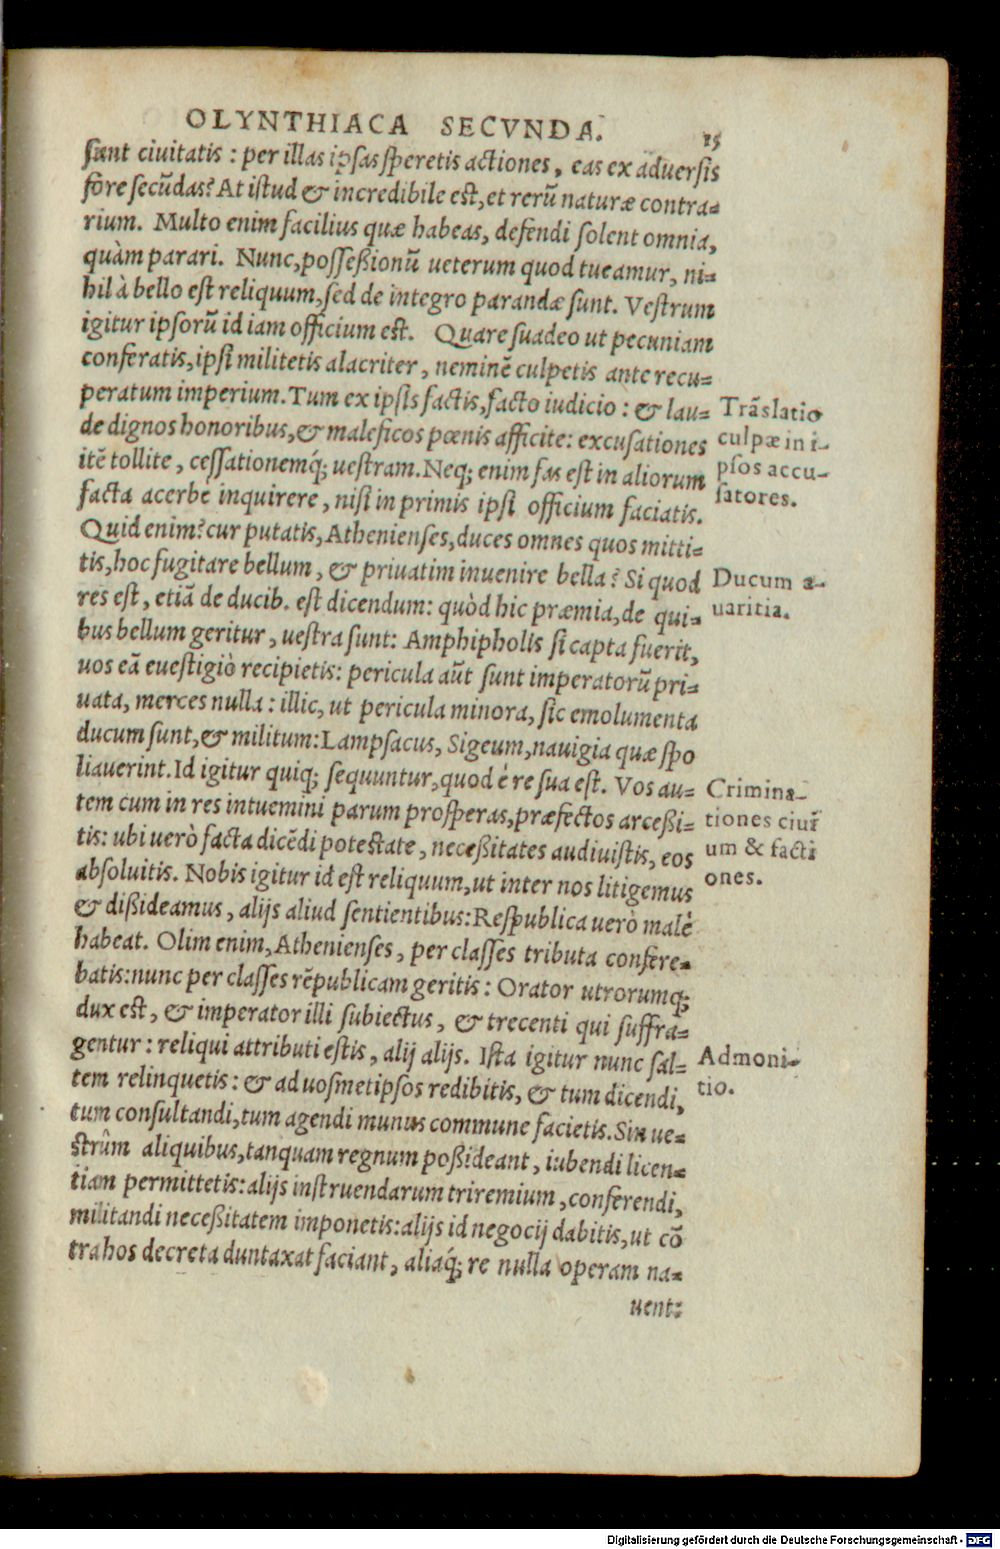 OLYNTHIACA SECVNDA. 15
sunt ciuitatis : per illas ipsas speretis actiones, eas ex aduersis
fore secūdas? At istud & incredibile est, et rerū naturæ contra-
rium. Multo enim facilius quæ habeas, defendi solent omnia,
quàm parari. Nunc, possessionū ueterum quod tueamur, ni-
hil à bello est reliquum, sed de integro parandæ sunt. Vestrum
igitur ipsorū id iam officium est. Quare suadeo ut pecuniam
conferatis, ipsi militetis alacriter, neminē culpetis ante recu-
peratum imperium. Tum ex ipsis factis, facto iudicio : & lau-
de dignos honoribus, & maleficos pœnis afficite: excusationes
itē tollite, cessationemq́; uestram. Neq; enim fas est in aliorum
facta acerbe inquirere, nisi in primis ipsi officium faciatis.
Quid enim? cur putatis, Athenienses, duces omnes quos mitti-
tis, hoc fugitare bellum, & priuatim inuenire bella? Si quod
res est, etiā de ducib. est dicendum: quòd hic præmia, de qui-
bus bellum geritur, uestra sunt: Amphipholis si capta fuerit,
uos eā euestigiò recipietis: pericula aūt sunt imperatorū pri-
uata, merces nulla : illic, ut pericula minora, sic emolumenta
ducum sunt, & militum: Lampsacus, Sigeum, nauigia quæ spo
liauerint. Id igitur quiq; sequuntur, quod è re sua est. Vos au-
tem cum in res intuemini parum prosperas, præfectos arcessi-
tis: ubi uerò facta dicēdi potestate, necessitates audiuistis, eos
absoluitis. Nobis igitur id est reliquum, ut inter nos litigemus
& dissideamus, alijs aliud sentientibus: Respublica uerò malè
habeat. Olim enim, Athenienses, per classes tributa confere-
batis: nunc per classes rēpublicam geritis : Orator utrorumq;
dux est, & imperator illi subiectus, & trecenti qui suffra-
gentur : reliqui attributi estis, alij alijs. Ista igitur nunc sal-
tem relinquetis : & ad uosmetipsos redibitis, & tum dicendi,
tum consultandi, tum agendi munus commune facietis. Sin ue-
strûm aliquibus, tanquam regnum possideant, iubendi licen-
tiam permittetis: alijs instruendarum triremium, conferendi,
militandi necessitatem imponetis: alijs id negocij dabitis, ut cō
tra hos decreta duntaxat faciant, aliaq́; re nulla operam na-
uent:
Trāslatio
culpæ in i-
psos accu-
satores.
Ducum a-
uaritia.
Crimina-
tiones ciui
um & facti
ones.
Admoni-
tio.
Digitalisierung gefördert durch die Deutsche Forschungsgemeinschaft - DFG